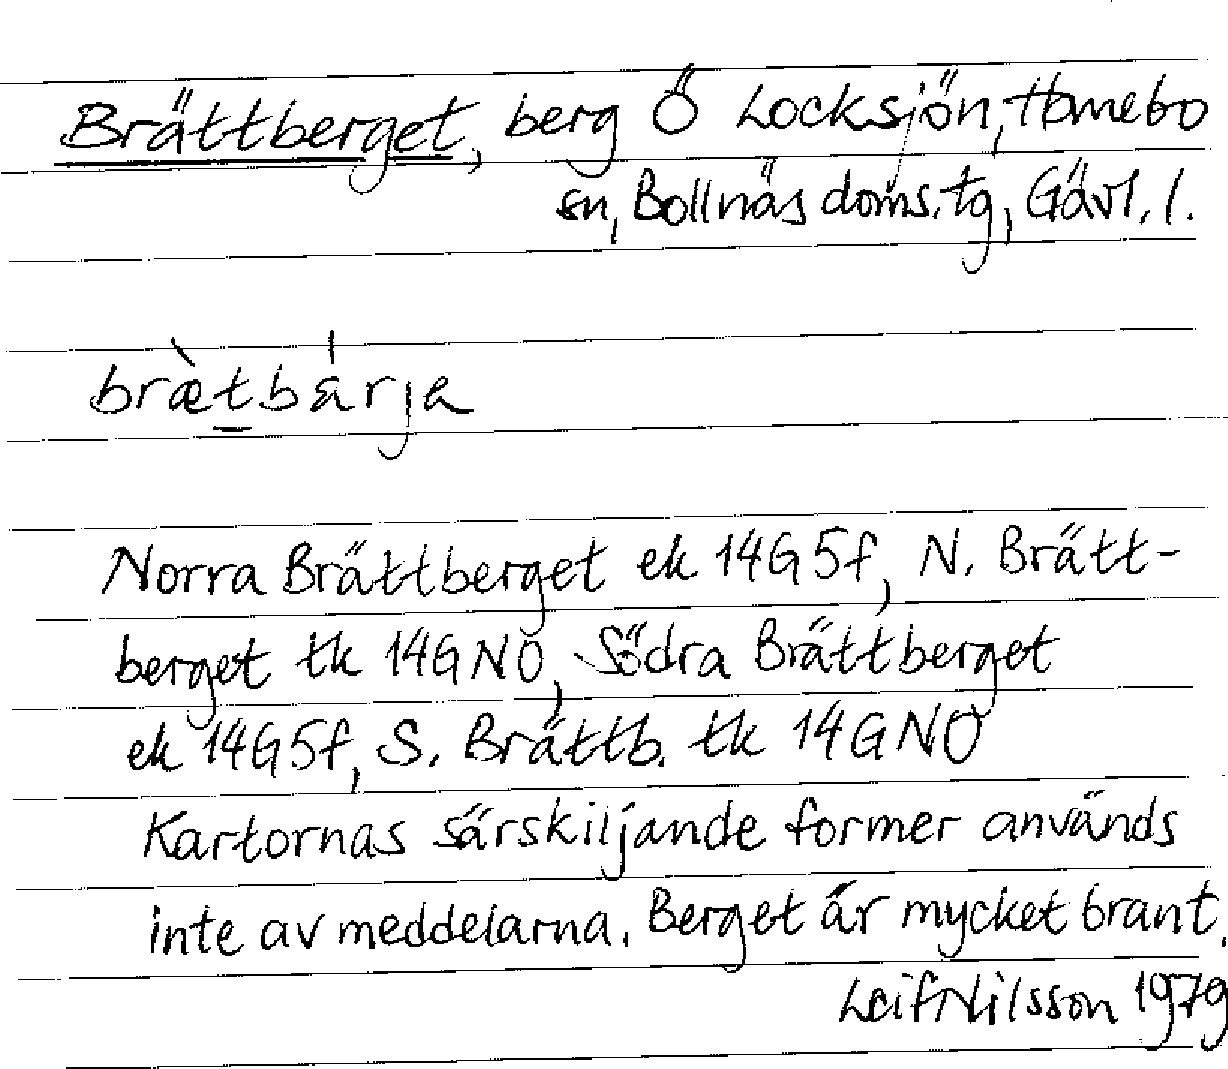 Brättberget, berg Ö Locksjön, Hanebo
sn, Bollnäs doms. tg, Gävl. l.
bræ̀tbárja
Norra Brättberget ek 14G5f, N. Brätt-
berget tk 14GNO, Södra Brättberget
ek 14G5f, S. Brättb. tk 14GNO
Kartornas särskiljande former används
inte av meddelarna. Berget är mycket brant.
Leif Nilsson 1979